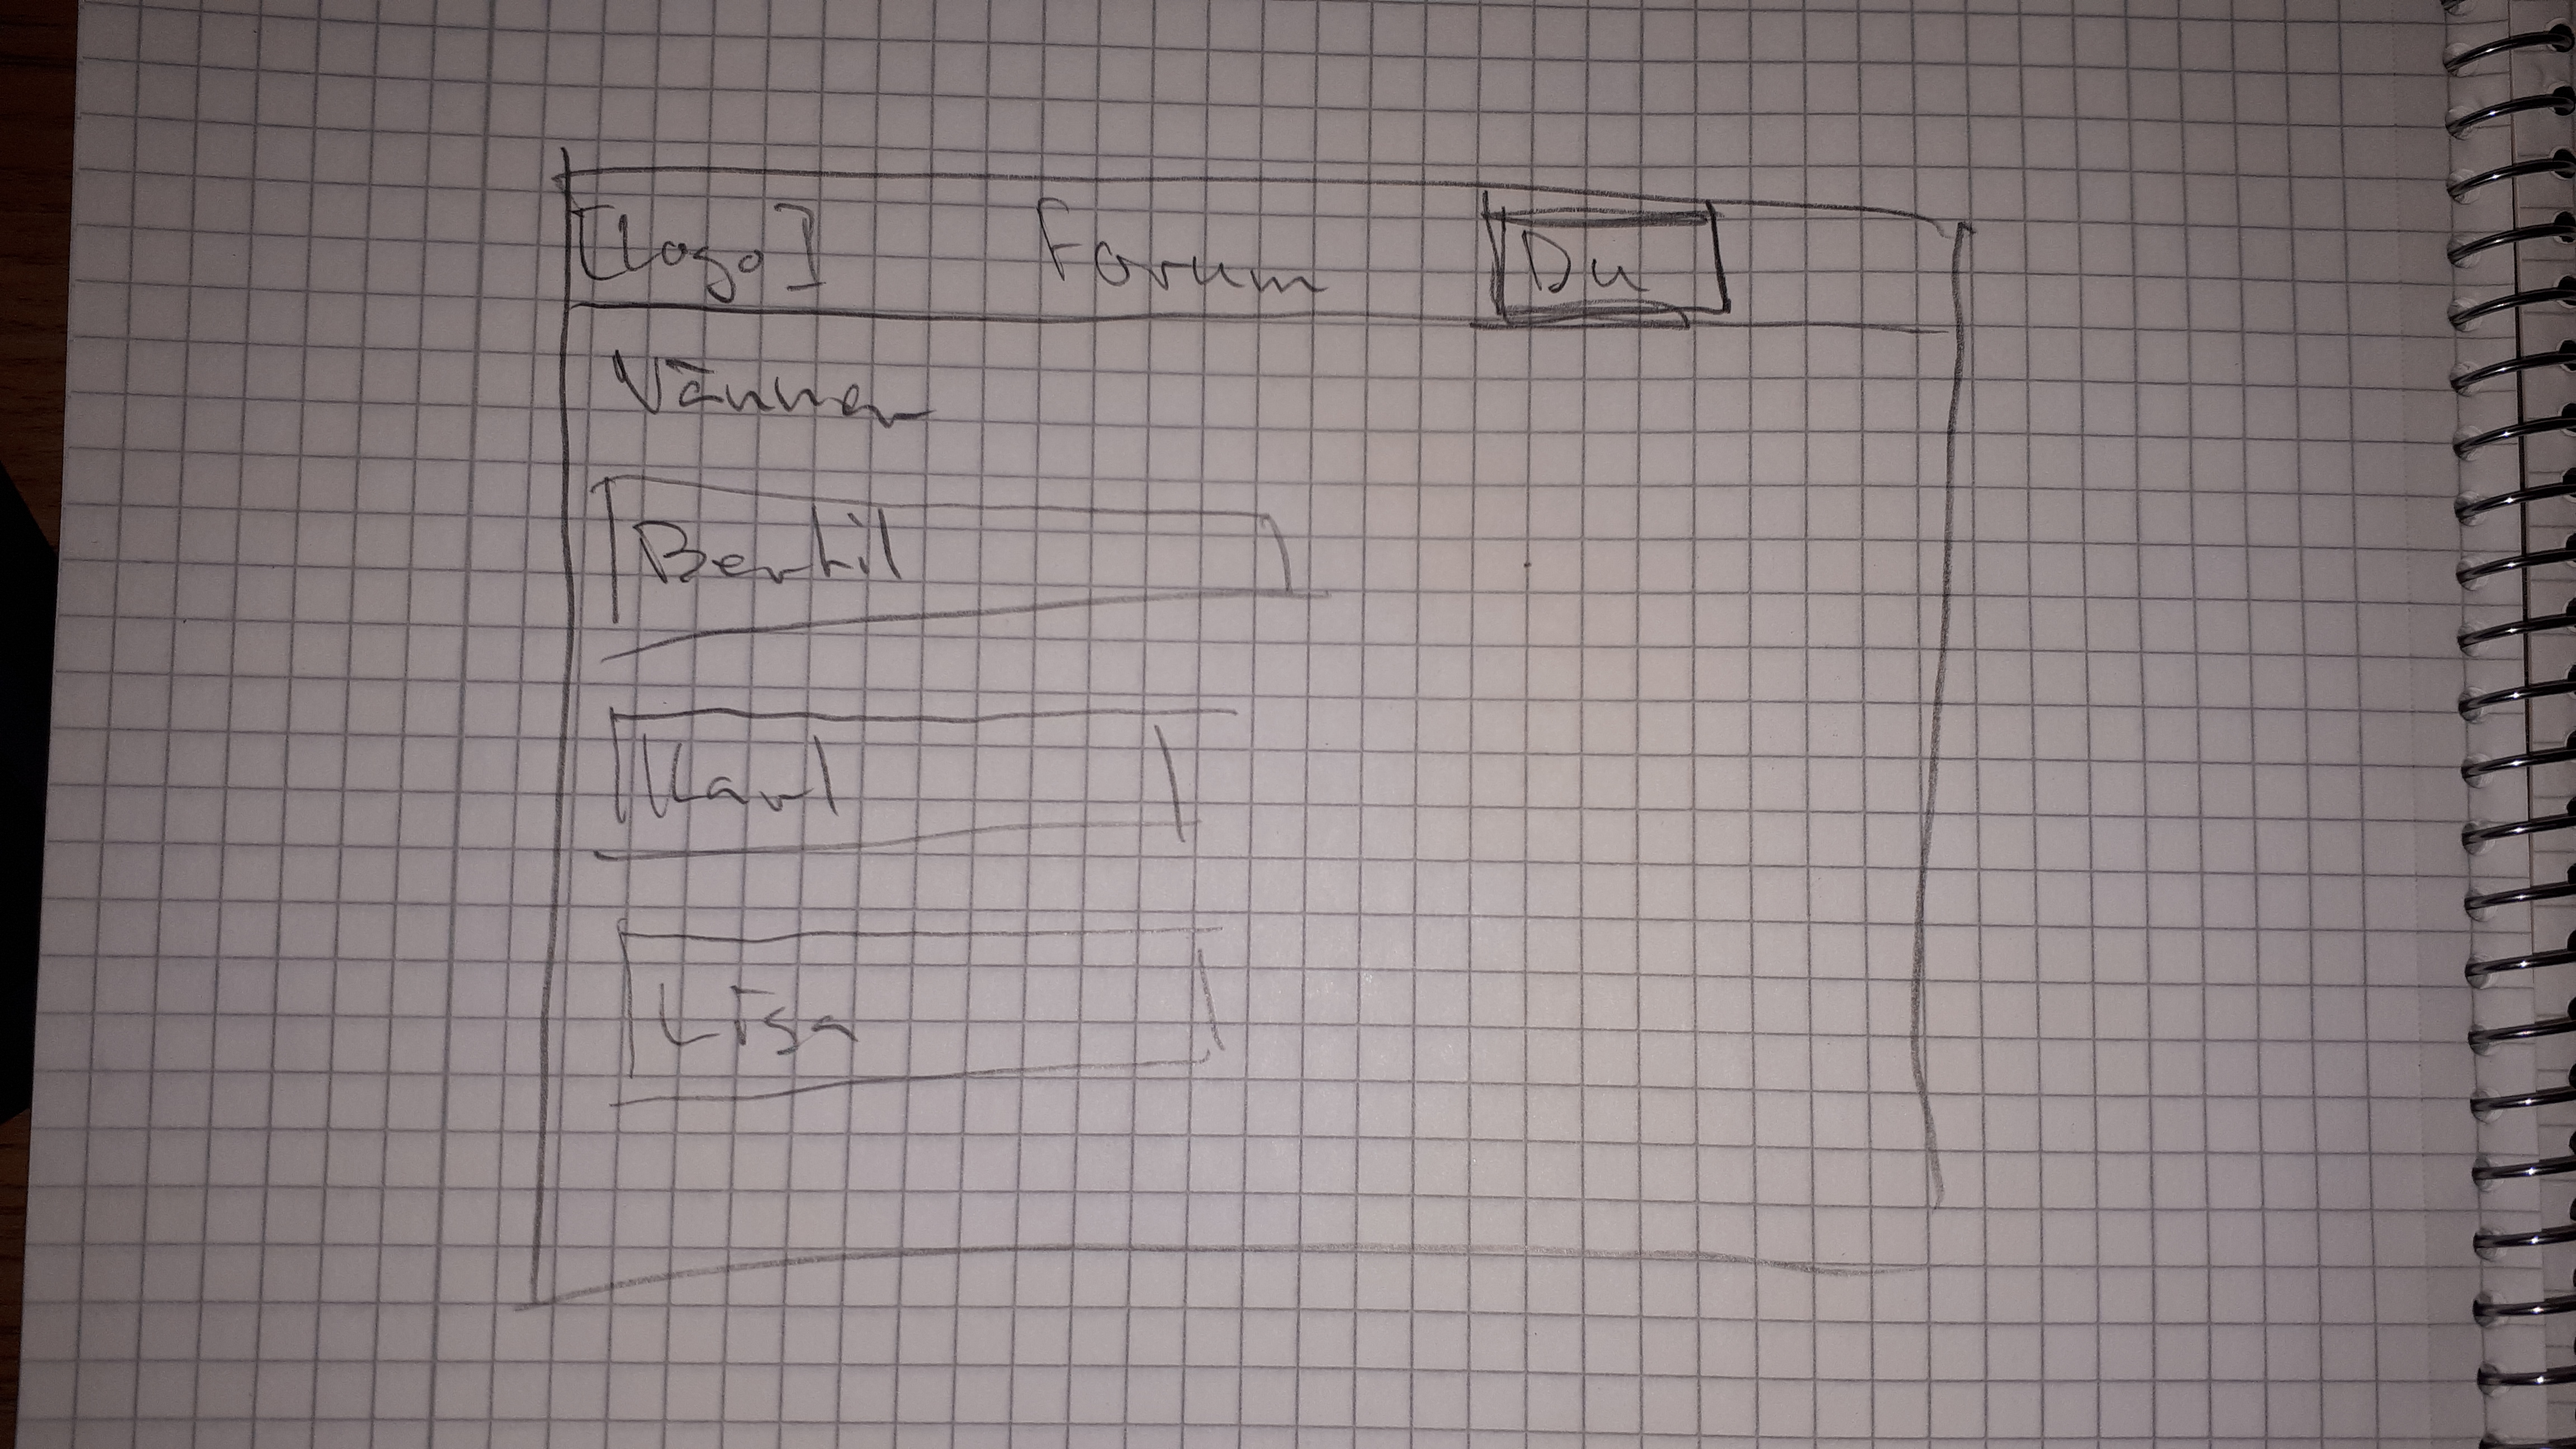 [Logo] Forum Du
Vänner
Bertil
Karl
Lisa